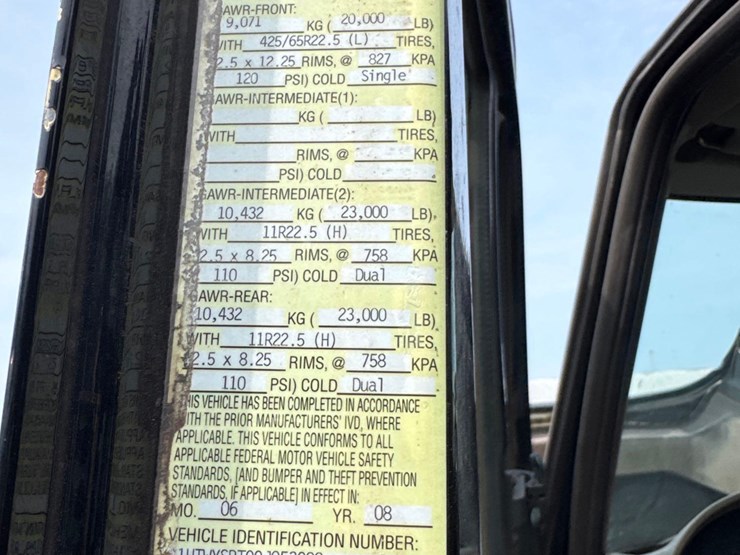 GAWR-FRONT:
9,071 KG ( 20,000 LB)
WITH 425/65R22.5 (L) TIRES,
2.5 x 12.25 RIMS, @ 827 KPA
120 PSI) COLD Single
GAWR-INTERMEDIATE(1):
KG ( LB)
WITH TIRES,
RIMS, @ KPA
PSI) COLD
GAWR-INTERMEDIATE(2):
10,432 KG ( 23,000 LB)
WITH 11R22.5 (H) TIRES,
2.5 x 8.25 RIMS, @ 758 KPA
110 PSI) COLD Dual
GAWR-REAR:
10,432 KG ( 23,000 LB)
WITH 11R22.5 (H) TIRES,
2.5 x 8.25 RIMS, @ 758 KPA
110 PSI) COLD Dual
THIS VEHICLE HAS BEEN COMPLETED IN ACCORDANCE
WITH THE PRIOR MANUFACTURERS' IVD, WHERE
APPLICABLE. THIS VEHICLE CONFORMS TO ALL
APPLICABLE FEDERAL MOTOR VEHICLE SAFETY
STANDARDS, [AND BUMPER AND THEFT PREVENTION
STANDARDS, IF APPLICABLE] IN EFFECT IN:
MO. 06 YR. 08
VEHICLE IDENTIFICATION NUMBER: